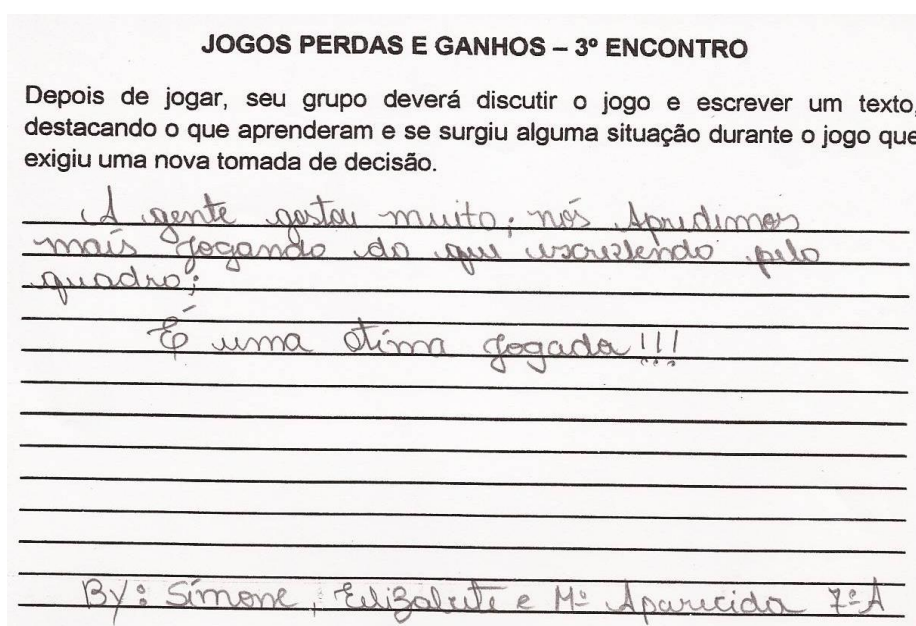 JOGOS PERDAS E GANHOS – 3º ENCONTRO
Depois de jogar, seu grupo deverá discutir o jogo e escrever um texto,
destacando o que aprenderam e se surgiu alguma situação durante o jogo que
exigiu uma nova tomada de decisão.
A gente gostou muito; nós Aprudimos
mais jogando do que escrevendo pelo
quadro;
É uma otima jogada!!!
By: Simone, Elizabete e Mª Aparecida 7ª A